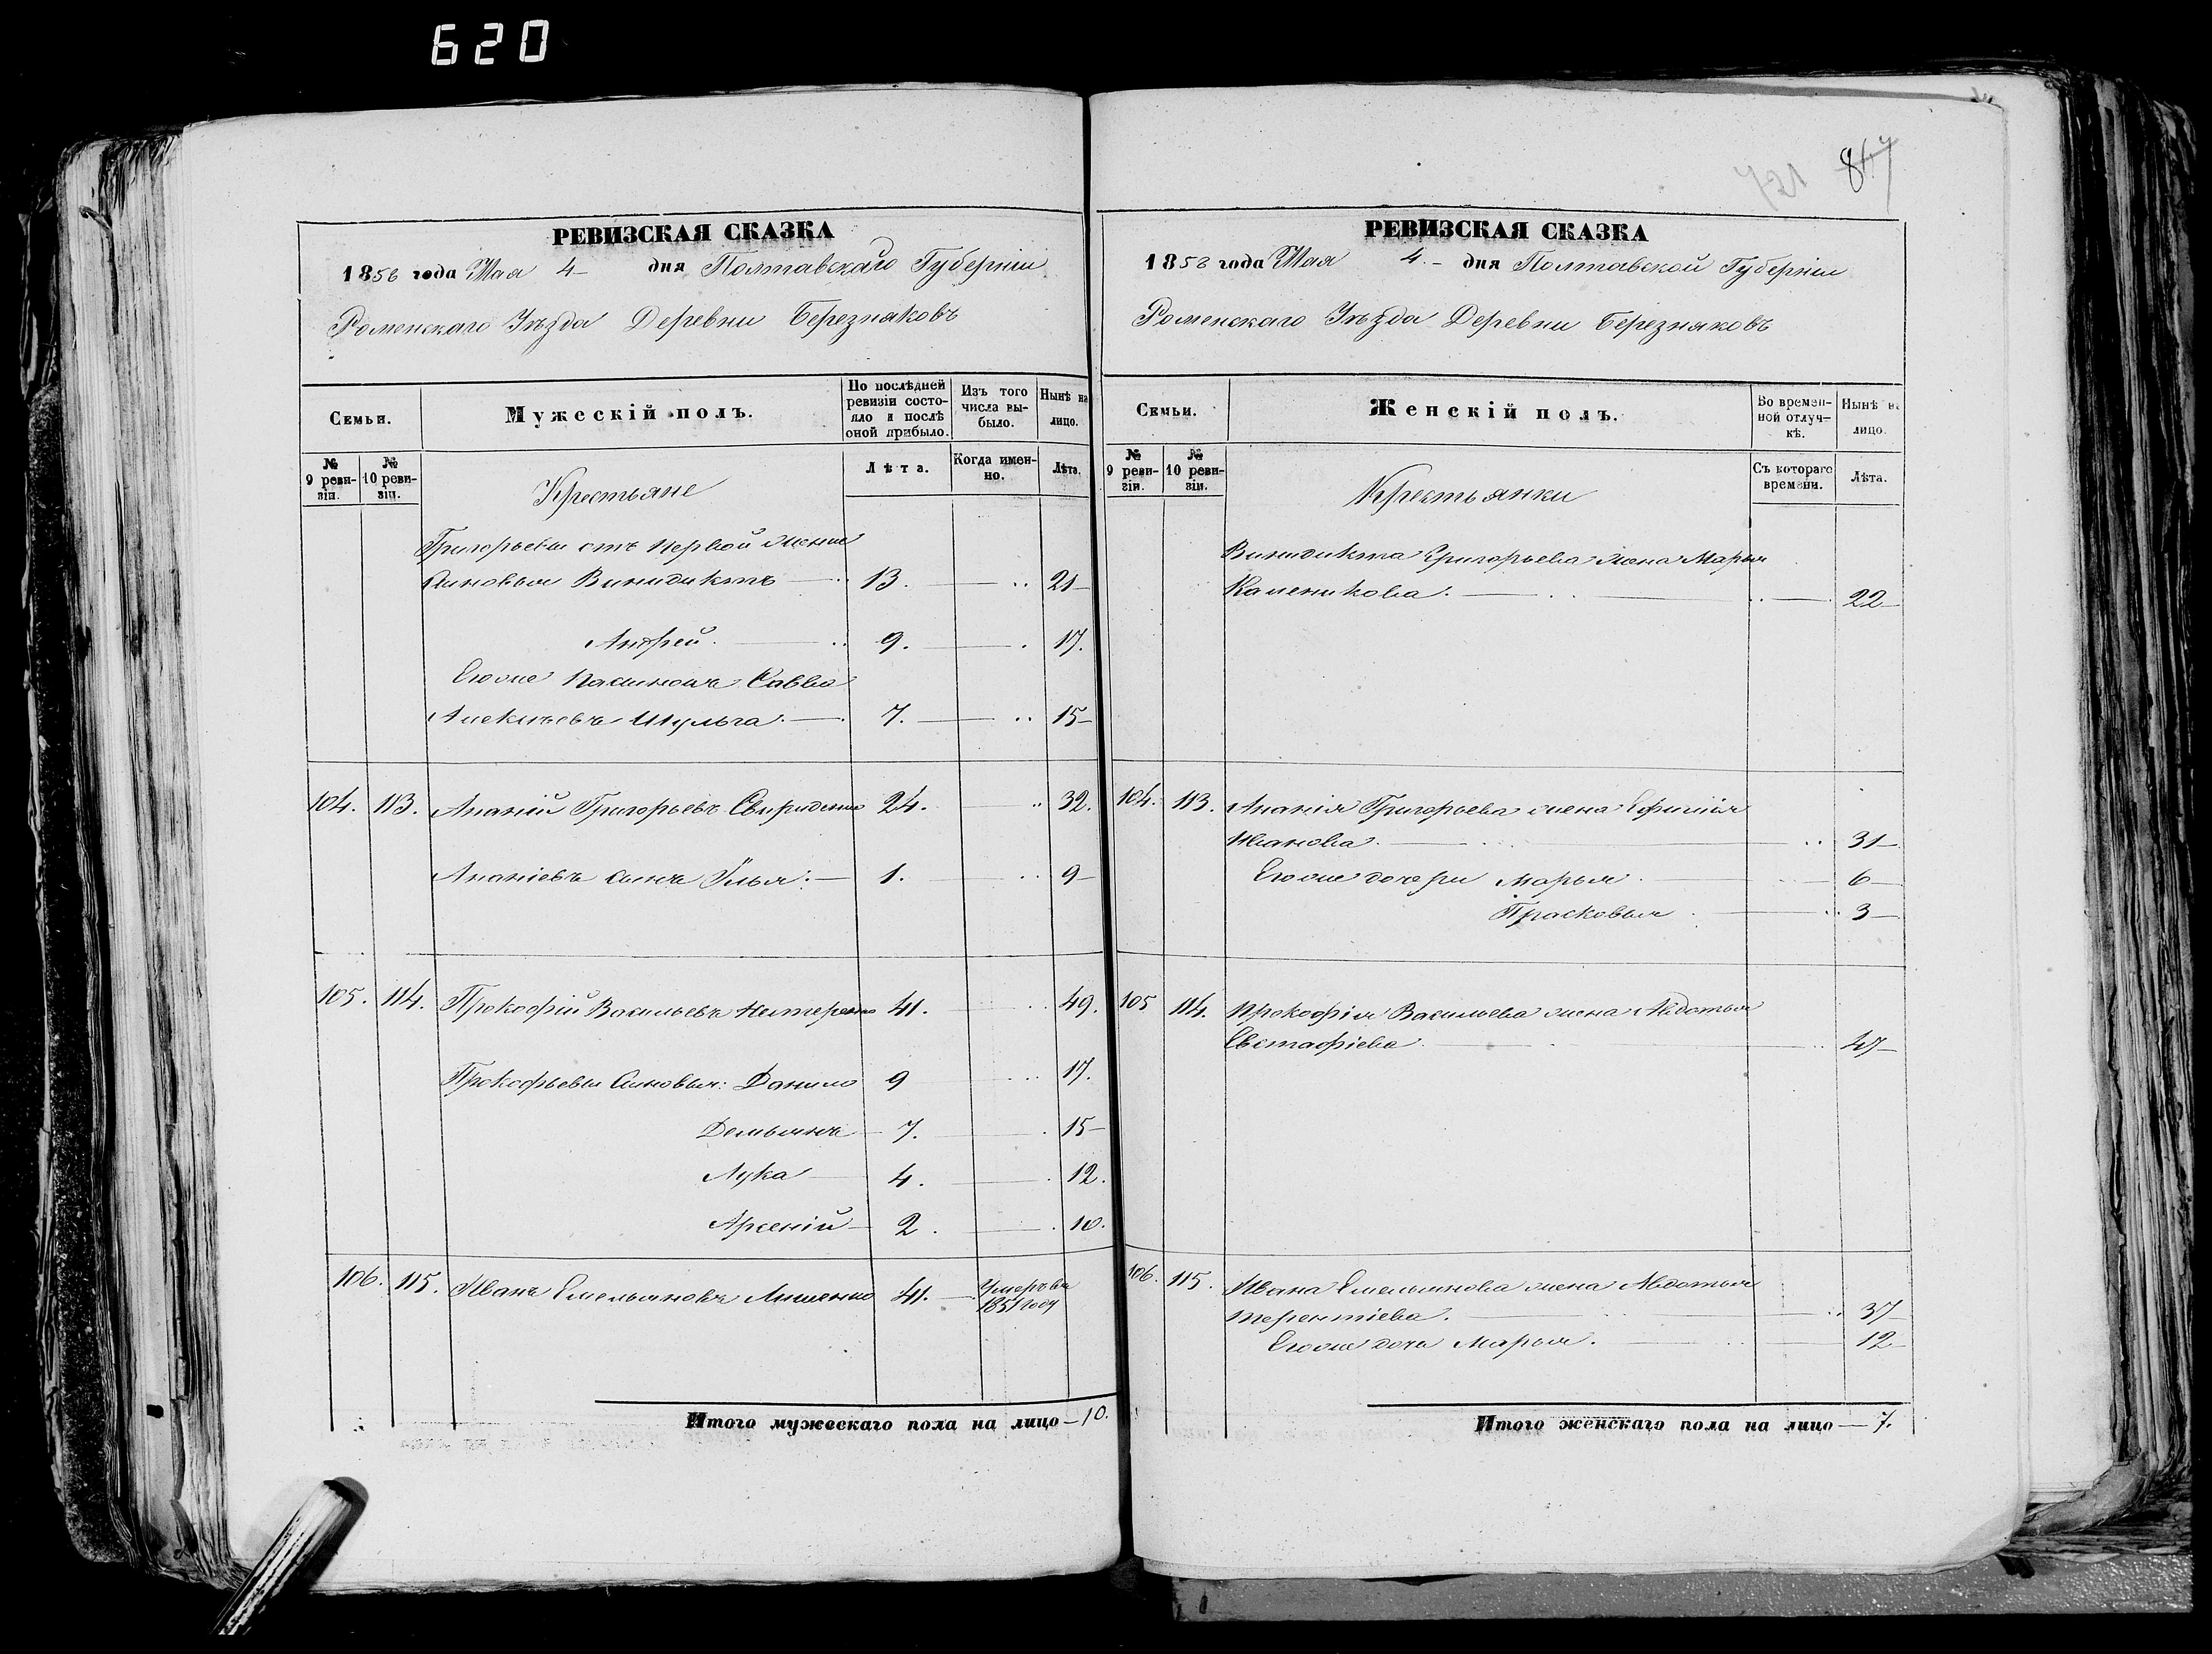 620
721 847
РЕВИЗСКАЯ СКАЗКА
1858 года Мая 4 дня Полтавскаго Губерніи
Роменскаго Уѣзда Деревни Березняковъ
Семьи.
Мужескій полъ.
По послѣдней ревизіи состояло и послѣ оной прибыло.
Изъ того числа выбыло.
Нынѣ на лицо.
№ 9 ревизіи.
№ 10 ревизіи.
Крестьяне
Лѣта.
Когда именно.
Лѣта.
Григорьевы отъ первой жены
сыновья Винидиктъ 13. 21
Андрей. 9. 17.
Егоже пасынокъ Савва
Алексѣевъ Шульга. 7. 15
104. 113. Ананій Григорьевъ Свириденко 24. 32.
Ананіевъ сынъ Илья. 1. 9
105. 114. Прокофій Васильевъ Нестеренко 41. 49.
Прокофьевы Сыновья: Данило 9 17.
Демьянъ 7. 15
Лука 4. 12.
Арсеній 2. 10.
106. 115. Иванъ Емельяновъ 41. Умеръ въ
1851 году
Итого мужескаго пола на лицо — 10.
РЕВИЗСКАЯ СКАЗКА
1858 года Мая 4. дня Полтавской Губерніи
Роменскаго Уѣзда Деревни Березняковъ
Семьи.
Женскій полъ.
Во временной отлучкѣ.
Нынѣ на лицо.
№ 9 ревизіи.
№ 10 ревизіи.
Крестьянки
Съ котораго времени.
Лѣта.
Винидикта Григорьева жена Марья
Каленикова. 22
104. 113. Ананія Григорьева жена Ефимія
Иванова. 31
Егоже дочери Марья. 6
Прасковья 3
105 114. Прокофія Васильева жена Авдотья
Евстафіева 47
106. 115. Ивана Емельянова жена Авдотья
Терентіева. 37
Егоже дочь Марья. 12
Итого женскаго пола на лицо — 7.